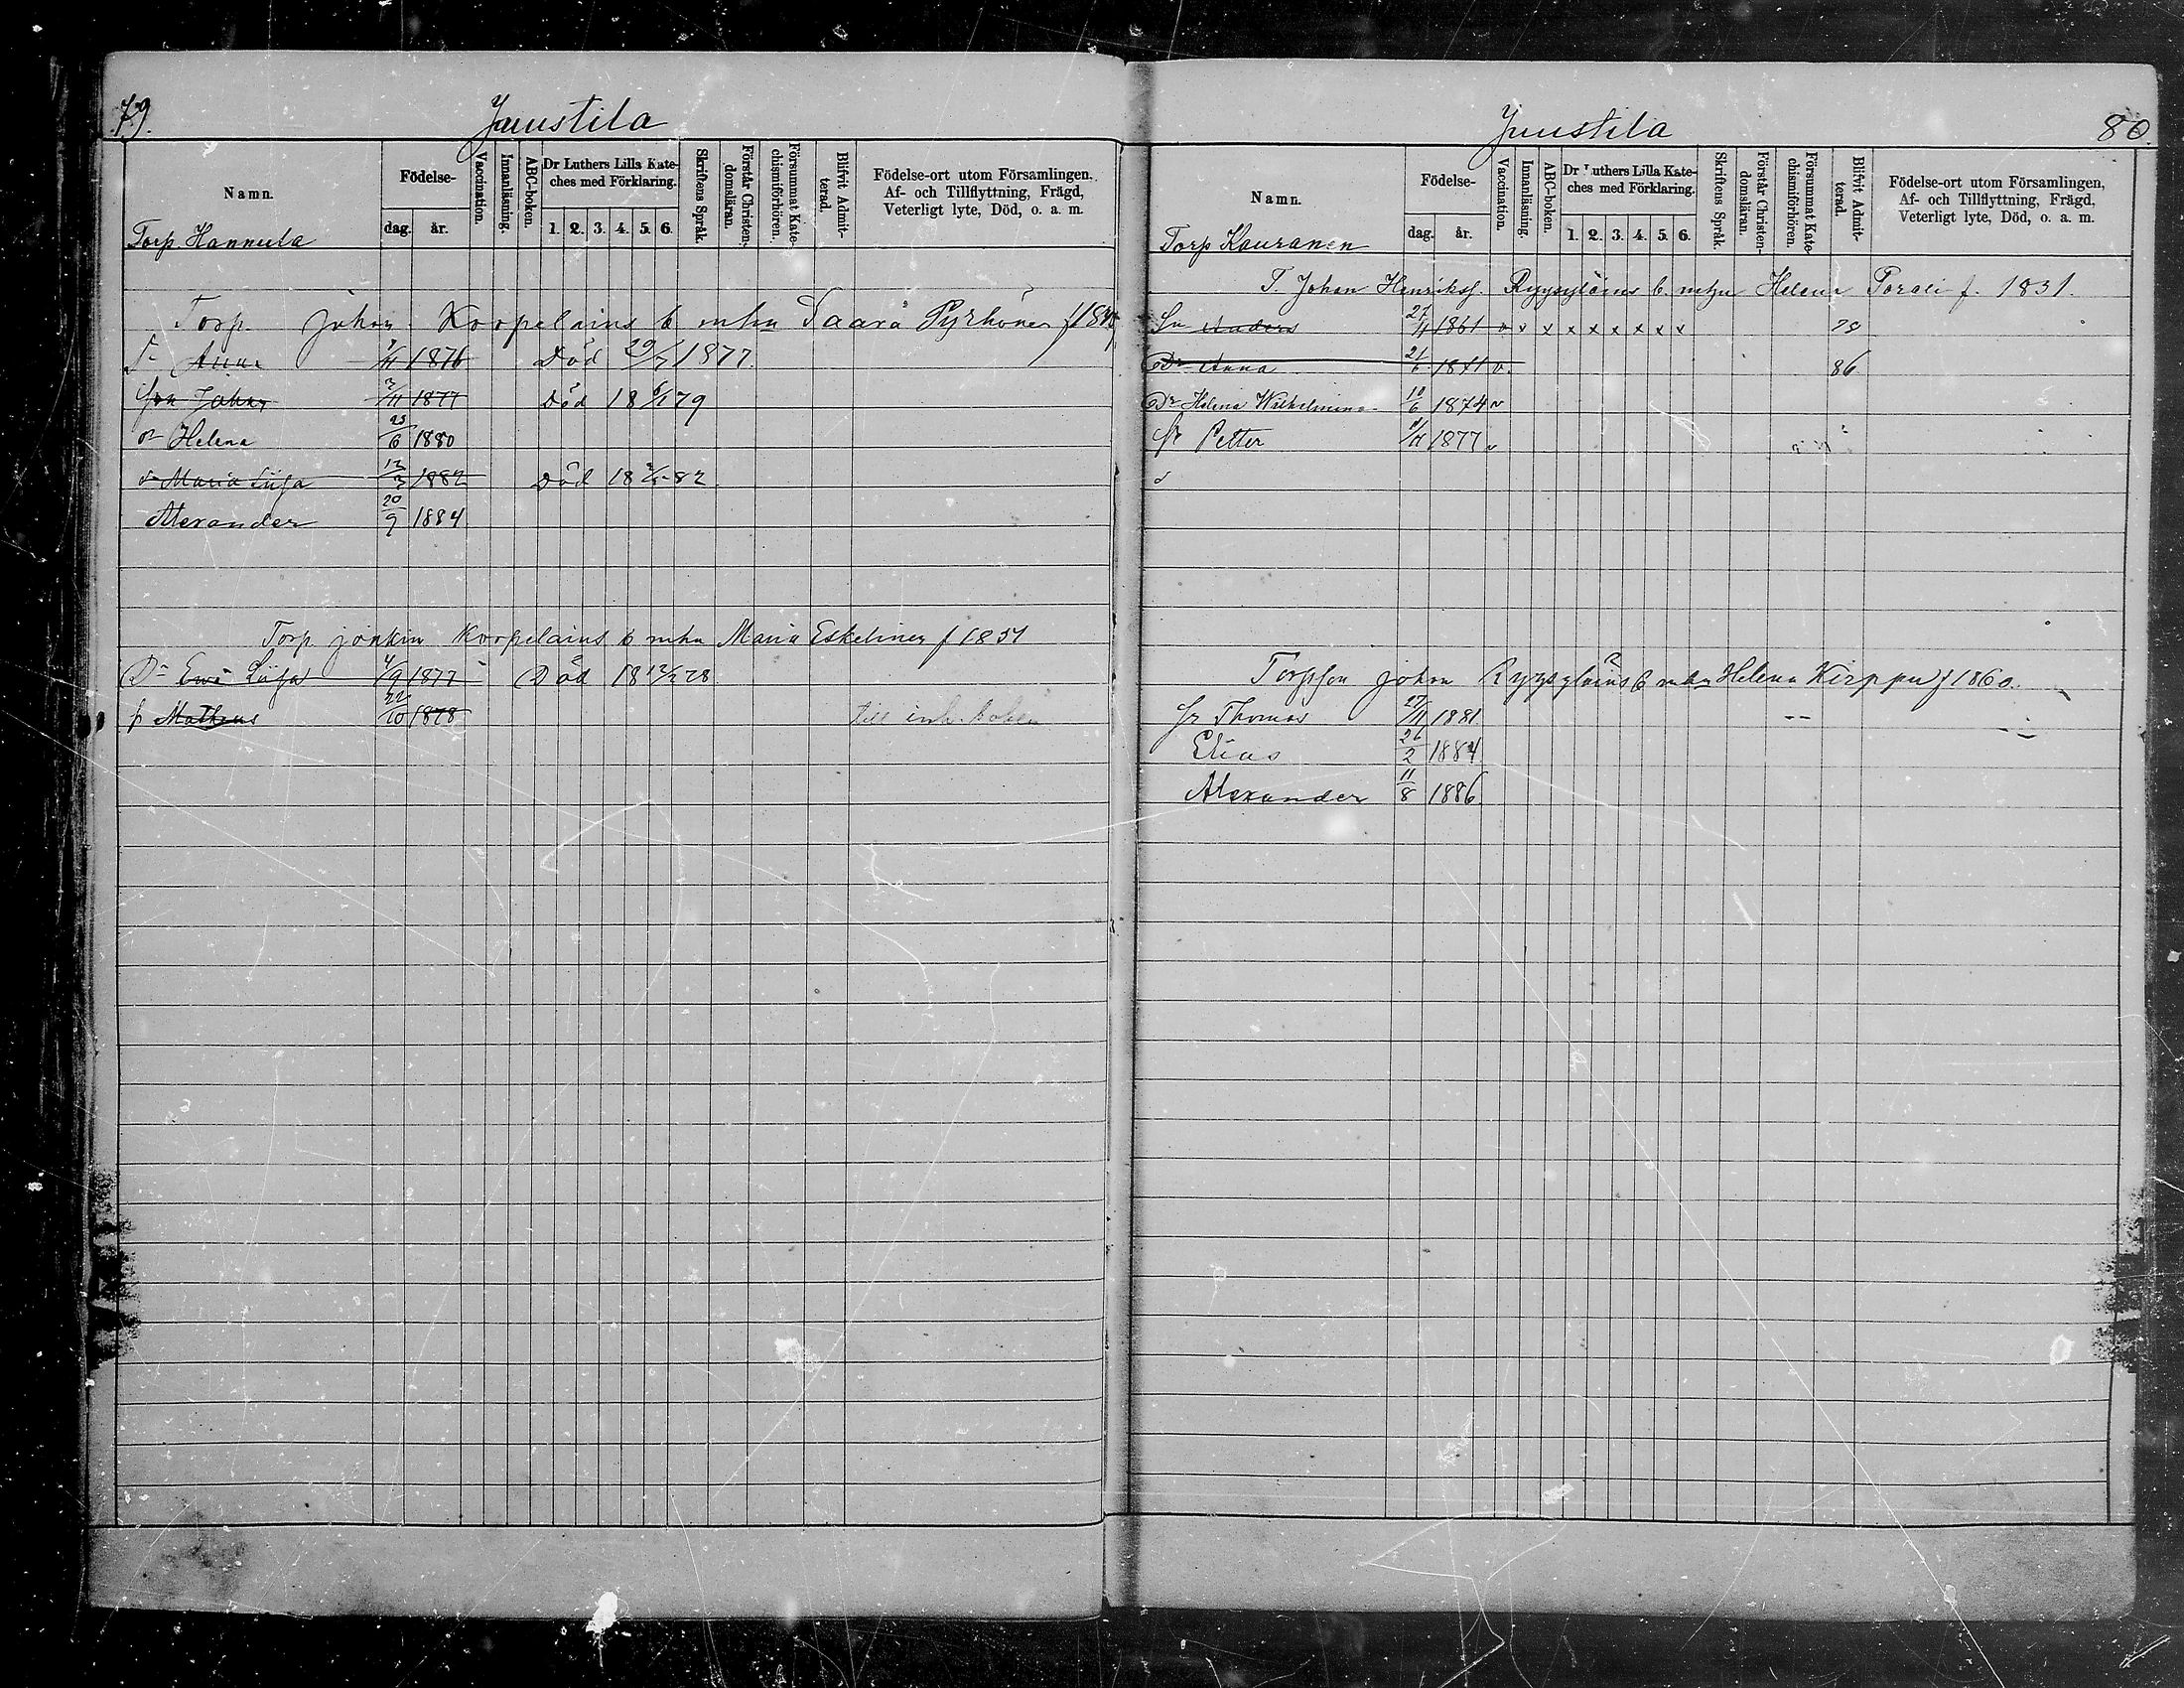 79.
Juustila
Namn.
Födelse-
dag. år.
Vaccination.
Innanläsning.
ABC-boken.
Dr Luthers Lilla Kate-
ches med Förklaring.
1. 2. 3. 4. 5. 6.
Skriftens Språk.
Förstår Christen-
domsläran.
Försummat Kate-
chismiförhören.
Blifvit Admit-
terad.
Födelse-ort utom Församlingen,
Af- och Tillflyttning, Frägd,
Veterligt lyte, Död, o. a. m.
Torp Hannula
Torp. Johan Korpelains b. mhu Saara Pyrhönen f 18
Anna 1876 Död 29/7 1877.
Son Johan 1877 Död 18 79
Dr Helena 23/6 1880
Dr Maria Liisa 13/3 1882 Död 18 82
Alexander 20/9 1884
Torp. Jonkin Korpelains b mhu Maria Eskelinen f 1851
Dr Eva Liisa 4/9 1877 Död 18 12/2 78
Matheus 22/10 1878 till inh. boken
80.
Juustila
Namn.
Födelse-
dag. år.
Vaccination.
Innanläsning.
ABC-boken.
Dr Luthers Lilla Kate-
ches med Förklaring.
1. 2. 3. 4. 5. 6.
Skriftens Språk.
Förstår Christen-
domsläran.
Försummat Kate-
chismiförhören.
Blifvit Admit-
terad.
Födelse-ort utom Församlingen,
Af- och Tillflyttning, Frägd,
Veterligt lyte, Död, o. a. m.
Torp Kauranen
T. Johan Henrikss. Ryysyläins b. mhu Helena Porali f. 1831.
Sn Anders 27/11 1861 v v x x x x x x x 79
Dr Anna 21/6 1871 v. 86
Dr Helena Wilhelmina 10/6 1874 v
Sn Petter 1877 v
Torpson Johan Ryysyläins b mhu Helena Kirppu f 1860.
Sn Thomas 27/11 1881
Elias 26/2 1884
Alexander 11/8 1886